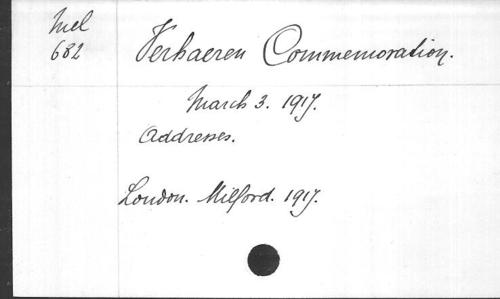 Mel
682
Verhaeren Commemoration.
March 3. 1917.
Addresses.
London. Milford. 1917.